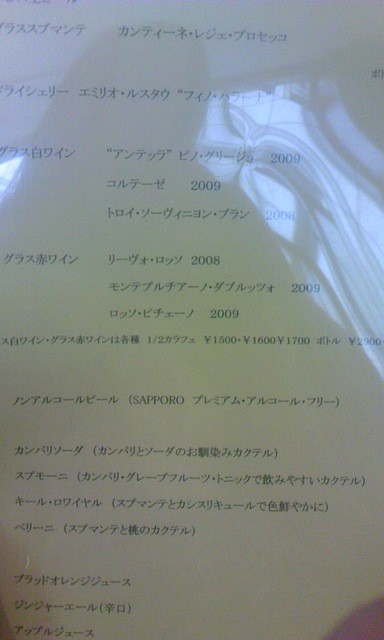 グラススプマンテ カンティーネ・レジェ・プロセッコ
ドライシェリー エミリオ・ルスタウ “フィノ・ハラーナ”
グラス白ワイン “アンテッラ” ピノ・グリージョ 2009
コルテーゼ 2009
トロイ・ソーヴィニヨン・ブラン 2008
グラス赤ワイン リーヴォ・ロッソ 2008
モンテプルチアーノ・ダブルッツォ 2009
ロッソ・ピチェーノ 2009
ス白ワイン・グラス赤ワインは各種 1/2カラフェ ￥1500・￥1600￥1700 ボトル ￥2900・
ノンアルコールビール (SAPPORO プレミアム・アルコール・フリー)
カンパリソーダ (カンパリとソーダのお馴染みカクテル)
スプモーニ (カンパリ・グレープフルーツ・トニックで飲みやすいカクテル)
キール・ロワイヤル (スプマンテとカシスリキュールで色鮮やかに)
ベリーニ (スプマンテと桃のカクテル)
ブラッドオレンジジュース
ジンジャーエール(辛口)
アップルジュース